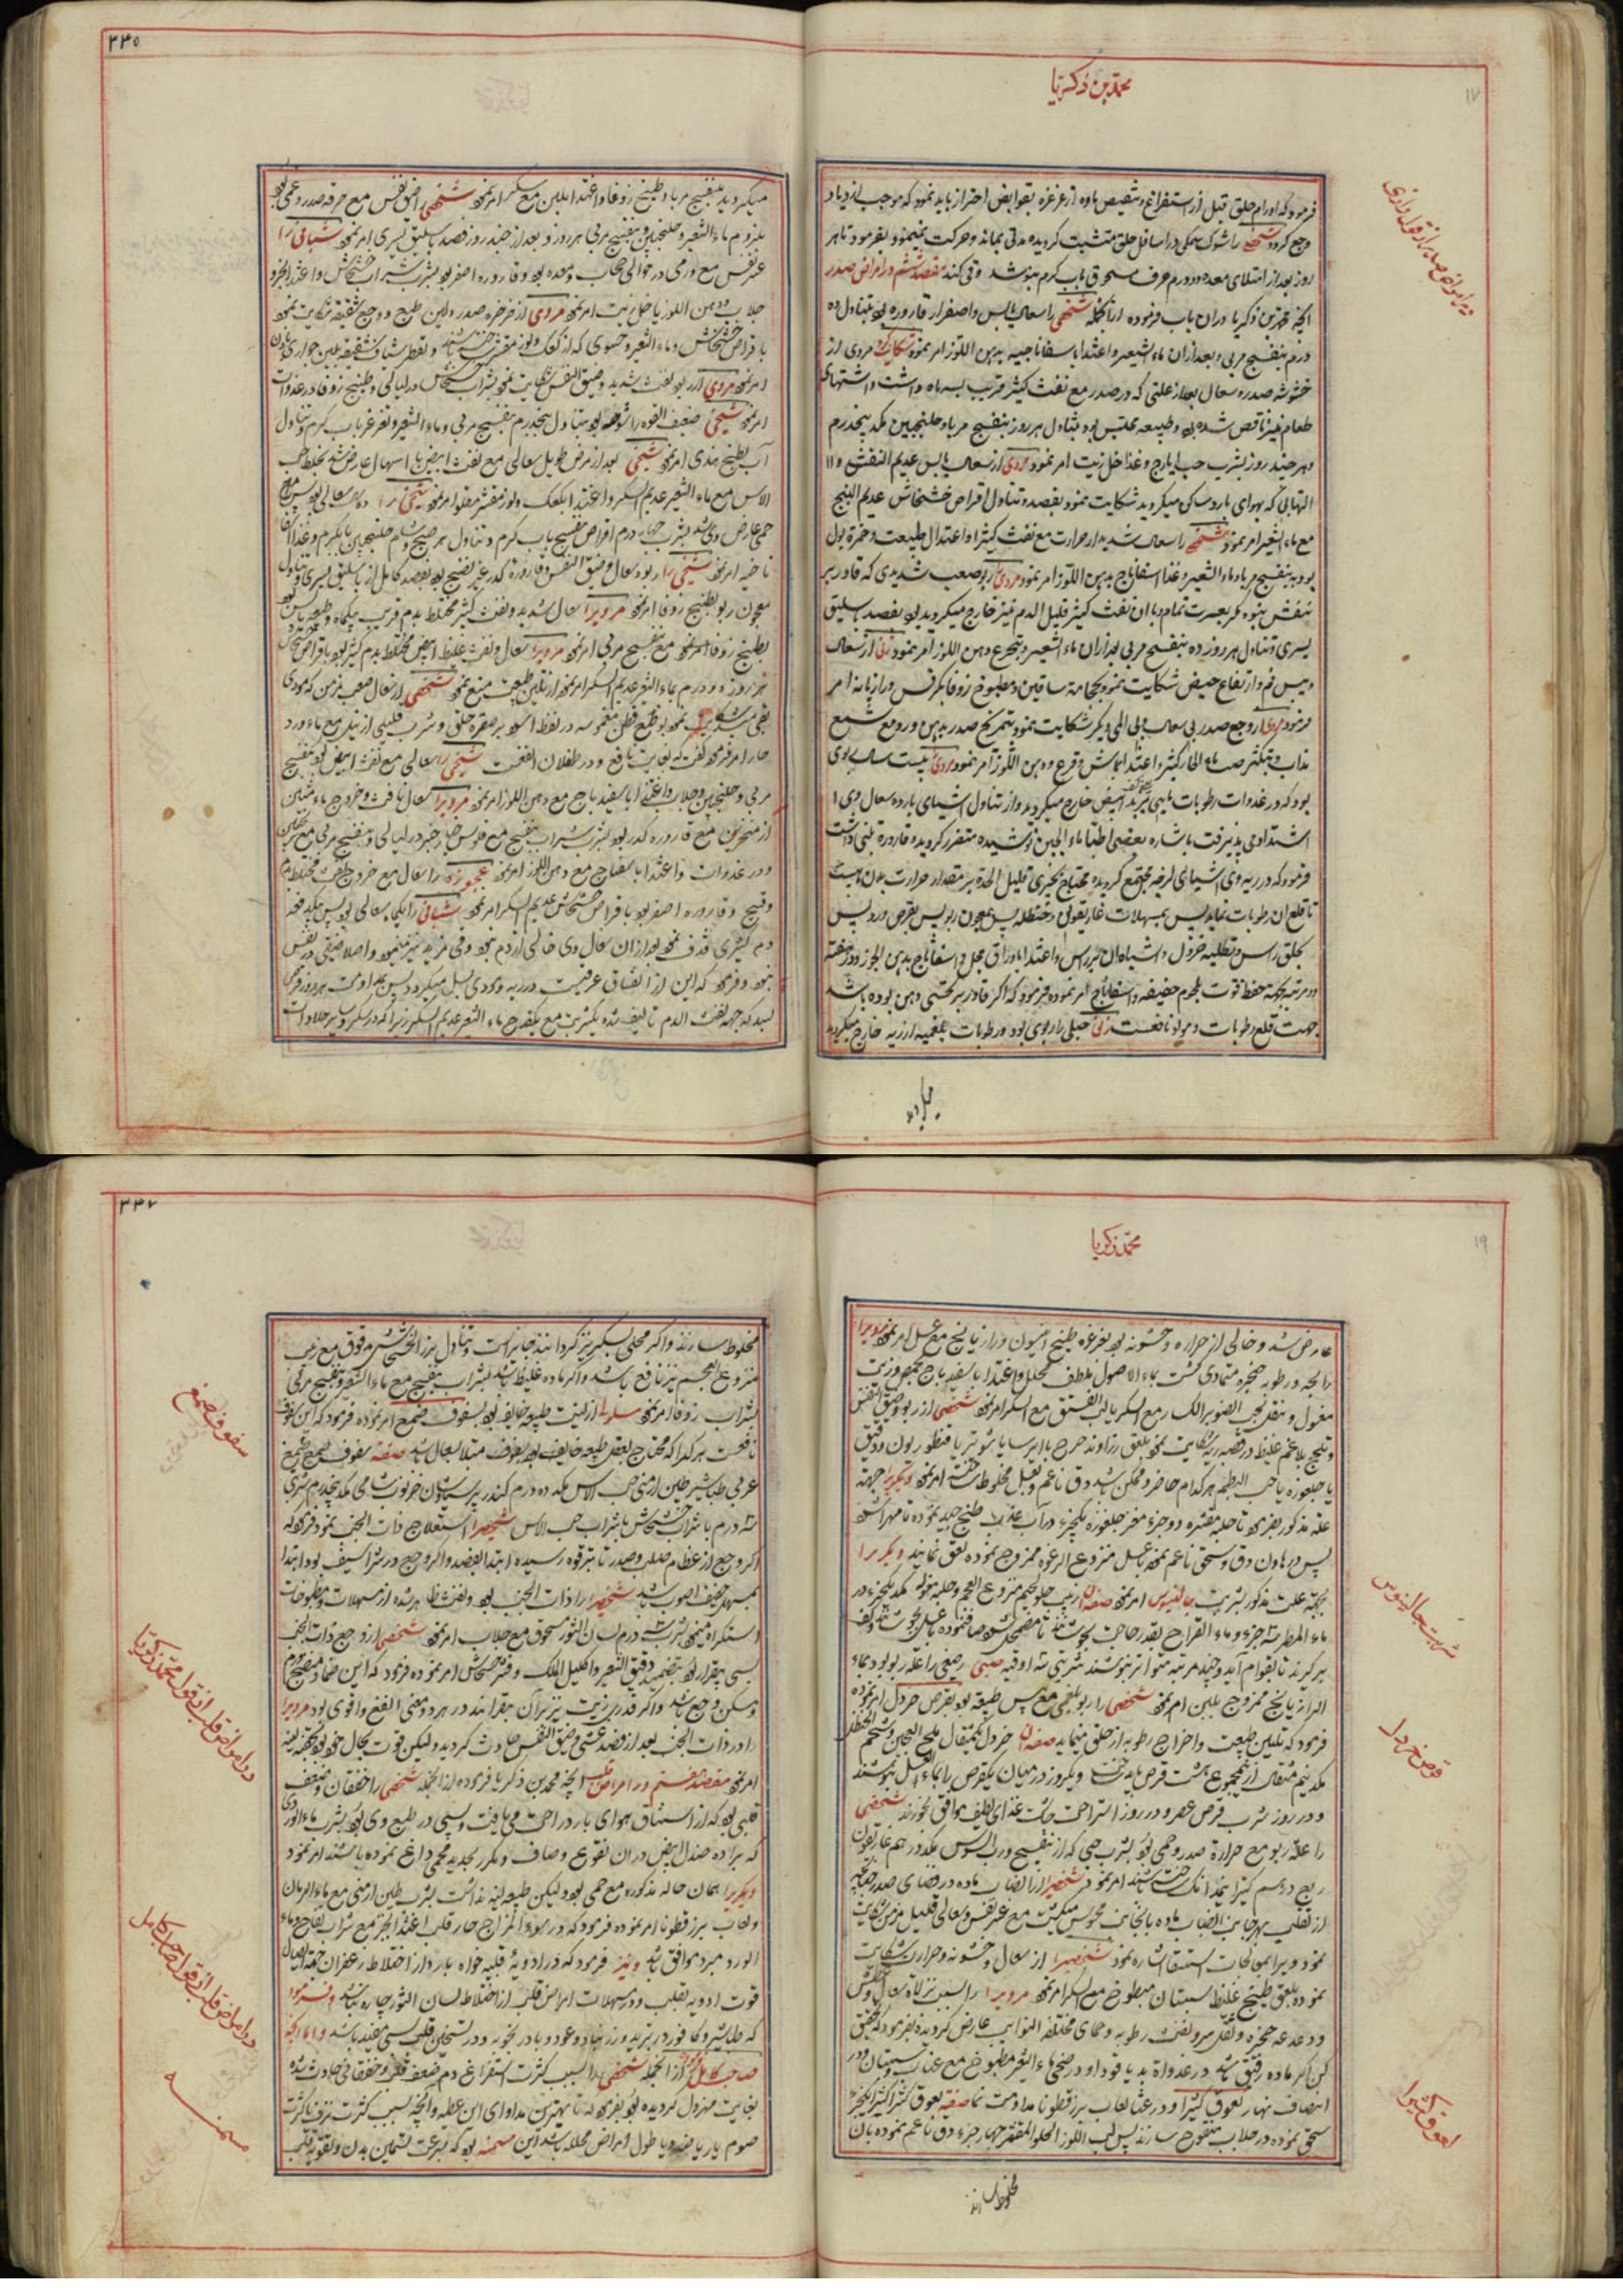 محمد بن زکریا
۱۷
در امراض صدر از قول رازی
فرمود که اورام حلق قبل از استفراغ و تنقیص ماده از غرغره بقوابض احتراز باید نمود که موجب ازدیاد
وجع کردد شخصی را شوک سمکی در اسافل حلق متشبث کردیده مدتی بماند و حرکت نمینمود بفرمود تا هر
روز بعد از امتلای معده دو درم حرف مسحوق باب کرم بنوشد و قی کند مقصد ششم در امراض صدر
انچه محمد بن زکریا دران باب فرموده ازانجمله شخصی را سعال یابس و اصفرار قاروره بود بتناول ده
درم بنفسج مربی و بعد ازان ماء الشعیر و اغتذا باسفاناجیه بدهن اللوز امر نموده شکایت کرد مردی از
خشونة صدر و سعال بعد از علتی که در صدر مع نفث کثیر قریب بسه ماه داشت و اشتهای
طعام نیز ناقص شده بود و طبیعه محتبس بود بتناول هر روز بنفسج مربا و جلنجبین مکد پنجدرم
و هر چند روز بشرب حب ایارج و غذا خل زیت امر نمود مردی از سعال یابس عدیم النفث و
التهابی که بهوای بارد ساکن میکردید شکایت نمود بفصد و تناول اقراص خشخاش عدیم البنج
مع ماء الشعیر امر نمود شخصی را سعال شدید از حرارت مع نفث کثیر و اعتدال طبیعت و حمرة بول
بود به بنفسج مربا و ماء الشعیر و غذا اسفاناج بدهن اللوز امر نمود مردی را ربو صعب شدیدی که قادر بر
تنفس نبود مکر بعسرت تمام و با ان نفث کثیر قلیل الدم نیز خارج میکردید بود بفصد باسلیق
یسری و تناول هر روز ده بنفسج مربی بعد ازان ماء الشعیر و تجرع دهن اللوز امر نمود زنی از سعال
و یبس فم و ارتفاع حیض شکایت نمود بحجامة ساقین و مطبوخ زوفا بکرفس و رازیانه امر
فرمود مردی از وجع صدر بی سعال و بی المی دیکر شکایت نمود بتمریخ صدر بدهن ورد مع شمع
مذاب و بتکثر صب ماء الحار کثیر و اغتذا بماش و قرع و دهن اللوز امر نمود مردی بیست ساله بوی
بود که در غدوات رطوبات مایی شبیه بزبد ابیض خارج میکردید و از تناول اشیای بارده سعال وی
اشتدادمی پذیرفت باشاره بعضی اطبا ماء الجبن نوشیده متضرر کردیده و قاروره تبنی داشت
فرمود که در ریه وی اشیای لزجه مجتمع کردیده محتاج بچیزی قلیل الحدة بر مقدار حرارت بدن اوست
تا قلع ان رطوبات نماید پس بمسهلات غاریقونی و حنظله پس بمعجون ربو پس بقرص ورد پس
بحلق راس و تطلیه خردل و اشباه ان بر راس و اغتذا باوراق فجل و اسفاناج بدهن الجوز و در هفته
دو مرتبه بجهة حفظ قوت بلحوم خفیفه و اسفاناج امر نموده و فرمود که اکر قادر بر تحسی دهن بوده باشد
جهت قلع رطوبات و مواد نافعست زنی حبلی را ربوی بود و رطوبات بلغمیه از ریه خارج میکردید
میکردید
۳۳۵
میکردید به بنفسج مربا و طبیخ زوفا و اغتذا بلبن مع سکر امر نمود شخصی را ضیق نفس مع حرقه صدر و حمی بود
بلزوم ماء الشعیر و جلنجبین و بنفسج مربی هر روز و بعد از چند روز فصد باسلیق یسری امر نمود شبانی را
عسر نفس مع ورمی در حوالی حجاب و معده بود و قاروره اصفر بود بشرب شراب خشخاش و اغتذا بخبز و
جلاب و دهن اللوز یا خل زیت امر نمود مردی از خرخره صدر و لین طبع و وجع شقیقه شکایت نمود
باقراص خشخاش و ماء الشعیر و حسوی که از کعک و لوز مقشر
امر نمود مردی از ربو و نفث شدید و ضیق النفس شکایت نمود بشراب خشخاش در لیالی و طبیخ زوفا در غدوات
امر نمود شیخی ضعیف القوه را شوصه بود بتناول پنجدرم بنفسج مربی و ماء الشعیر و تغرغر باب کرم و تناول
آب بطیخ هندی امر نمود شیخی بعد از مرض طویل سعالی مع نفث ابیض با اسهال عارض شد بخلط حب
الاس مع ماء الشعیر عدیم السکر و اغتذا بکعک و لوز مقشر مقلو امر نمود شیخی را
حمی عارض وی شد بشرب چهار درم اقراص بنفسج باب کرم و تناول هر صبح و شام جلنجبین باب کرم و غذا
امر نمود شیخی را ربو و سعال و ضیق النفس و قاروره کدر غیر نضیج بود بفصد کامل از باسلیق یسری و تناول
معجون ربو بطبیخ زوفا امر نمود مردیرا سعال شدید و نفث کثیر مختلط بدم قریب بیکماه
بطبیخ زوفا امر نمود مع بنفسج مربی امر نمود مردیرا سعال و نفث غلیظ ابیض مختلط بدم کثیر بود باقراص
هر روز دو درم بماء الشعیر عدیم السکر امر نمود از تلیین طبیعت منع نمود شخصی از سعال صعب مزمن که مودی
مربی و جلنجبین و جلاب و اغتذا باسفیدباج مع دهن اللوز امر نمود مردیرا سعال یا نفث و خروج ماء
از منخرین مع قاروره کدر بود بشرب شراب بنفسج مع فلوس خیارچنبر در لیالی و بنفسج مربی مع جلنجبین
و در غدوات و اغتذا باسفاناج مع دهن اللوز امر نمود عجوزه را سعال مع خروج نفث مختلط بدم
و قیح و قاروره اصفر بود باقراص خشخاش عدیم السکر امر نمود شبانی را یکماه سعالی بود پس یکدفعه
دم کثیری قذف نمود بعد ازان سعال وی خالی از دم بود و قی مزید نیز مینمود و اصلا ضیقی در نفس
نبود و فرمود که این از انشقاق عرقیست در ریه و مودی بسل میکردد پس بمداومت هر روز قرص
لبد که جهة نفث الدم تالیف شده یکشربت مع یکقدح ماء الشعیر عدیم السکر زیرا که در سکر و سایر حلاوات
محمد زکریا
۱۹
عارض شد و خالی از حراره و خشونه بود بغرغره طبیخ انیسون و رازیانج مع عسل امر نمود مردیرا
را بحه و رطوبه حنجره متمادی کشت بماء الاصول ملطف محلل و اغتذا باسفیدباج بحمص و زیت
مغسول و تنقل بحب الصنوبر الکبار مع السکر یا لب الفستق مع السکر امر نمود شخصی از ربو و ضیق النفس
و تلجج بلاغم غلیظ در قصبه ریه شکایت نمود بلعق زراوند مدحرج یا ایرسا یا شونیز یا قنطوریون و دقیق
یا جلغوزه یا حب البطم هر کدام حاضر و ممکن باشد دق ناعم و بعسل مخلوط ساخته امر نمود و دیکریرا جهة
علة مذکور بفرمود تا حلبه مقشره دو جزء مغز جلغوزه یکجزء در آب عذب طبخ جید نموده تا مهرا شود
پس در هاون دق و سحق ناعم نموده بعسل منزوع الرغوه ممزوج نموده لعق نمایند و دیکریرا
بجهة علت مذکور بشربت جالینوس امر نمود صفة ان زبیب حلو لحیم منزوع العجم و حلبه مغسوله مکد یکجزء در
ماء المطر سه جزء و ماء القراح بقدر حاجت بجوشانند تا مضمحل شود صاف نموده با عسل بجوشانند و کف
بر کیرند تا بقوام آید و چند مرتبه متواتر بنوشند شربتی سه اوقیه صبی رضیعی را علة ربو بود بماء
الرازیانج ممزوج بلبن ام امر نمود شخصی را ربو بلغمی مع یبس طبیعه بود بقرص خردل امر نموده
فرمود که تلیین طبیعت و اخراج رطوبه از حلق مینماید صفة ان خردل یکمثقال ملح العجین و شحم الحنظل
مکد نیم مثقال از مجموع هشت قرص باید ساخت و یکروز در میان یکقرص را بماء العسل بنوشند
و در روز شرب قرص عصر و در روز استراحت چاشت غذای لطیف موافق بخورند شخصی
را علة ربو مع حرارة صدر و حمی بود بشرب حبی که از بنفسج و رب السوس یکدرهم غاریقون
ربع درهم کثیرا نیم دانک ساخته شد امر نمود شخصیرا از انصباب ماده در فضای صدر
از تقلب بهر جانبی انصباب ماده بانجانب محسوس میکشت مع عسر نفس و سعالی قلیل مزمن شکایت
نمود ویرا بمعالجات استسقا اشاره نمود شخصیرا از سعال و خشونه و حرارت شکایت
نموده بلعق طبیخ غلیظ سپستان مطبوخ مع السکر امر نمود مردیرا بسبب نزله سعال و عطش
و دغدغه حنجره و ثقل سر و نفث رطوبه و حمای مختلفة النوایب عارض کردیده بفرمود که تحقیق
کن اکر ماده رقیق باشد در غدواة بدیاقودا و در ضحی ماء الشعیر مطبوخ مع عناب و سپستان و در
انصاف نهار لعوق کثیرا و در عشا لعاب بزرقطونا مداومت نما صفة لعوق کثیرا کثیرا یکجزء
سحق نموده در جلاب منقوع سازند پس لب اللوز الحلو المقشر چهار جزء دق ناعم نموده بان
شربت جالینوس
قرص خردل
لعوق کثیرا
مخلوط سازند
۳۳۷
مخلوط سازند و اکر محلی بسکر نیز کردانند جایز است و تناول بزر الخشخاش مدقوق مع زبیب
منزوع العجم نیز نافع باشد و اکر ماده غلیظ باشد بشراب بنفسج مع ماء الشعیر و بنفسج مربی
بشراب زوفا امر نمود مسلولی از لینت طبیعه خایف بود بسفوف صمغ امر نموده فرمود که این سفوف
نافعست هر کرا که محتاج بعقل طبیعه خایف بود بقوابض مبتلا بسعال باشد صفة سفوف صمغ صمغ
عربی طباشیر طین ارمنی حب الاس مکد ده درم کندر پرسیاوشان خرنوب شامی مکد پنجدرم شربتی
سه درم با شراب خشخاش یا شراب حب الاس شخصیرا استعلاج ذات الجنب نمود فرمود که
اکر وجع از عظام صلب و صدر تا بترقوه رسیده ابتدا بفصد و اکر وجع در شراسیف بود ابتدا
بمسهل خفیف اصوب باشد شخصیرا ذات الجنب بود و نفث ظاهر شده از مسهلات و مطبوخات
استکراه مینمود بشرب سه درم لسان الثور مسحوق مع جلاب امر نمود شخصی از وجع ذات الجنب
بسی بیقرار بود بتضمید دقیق الشعیر و اکلیل الملک و قشر خشخاش امر نموده فرمود که این ضماد منضج ورم
و مسکن وجع باشد و اکر قدری زیت نیز بران بیفزایند در هر دو معنی انفع و اقوی بود مردیرا
را در ذات الجنب بعد از فصد غشی و ضیق النفس حادث کردید ولیکن قوت بحال خود بود بحقنه لینه
امر نمود مقصد هفتم در امراض قلب انچه محمد بن زکریا فرموده ازانجمله شخصی را خفقان و ضعف
قلبی بود که از استنشاق هوای بارد راحت می یافت و یبسی در طبع وی بود بشرب ماء الورد
که براده صندل ابیض دران نقوع و صاف و مکرر بحدید محمی داغ نموده باشند امر نمود
دیکریرا همان حاله مذکوره مع حمی بود ولیکن طبیعه لینه نداشت بشرب طین ارمنی مع ماء الرمان
و لعاب بزرقطونا امر نموده فرمود که در سوء المزاج حار قلب اغذا خبز مع شراب تفاح و ماء
الورد مبرد موافق باشد و نیز فرمود که در ادویه قلبیه خواه بارد از اختلاط زعفران جهة ایصال
قوت ادویه بقلب و در مسهلات امراض قلب از اختلاط لسان الثور چاره نباشد و فرمود
که طباشیر و کافور در تبرید و زرنباد و عود و بادرنجویه در تسخین قلب بسی مفید باشد و اما انچه
صاحب کامل فرموده ازانجمله شخصی را بسبب کثرت استفراغ دم ضعف قلب و خفقانی حادث شده
بغایت مهزول کردیده بود بفرمود که بهترین مداوای این عطیه و انچه بسبب کثرت نزف یا کثرت
صوم یا ریاضه و یا طول امراض محلله باشد این مسمنه بود که بسرعت تسمین بدن و تقویة قلب
سفوف صمغ
در امراض قلب از قول محمد زکریا
در امراض قلب از قول صاحب کامل
مسمنه